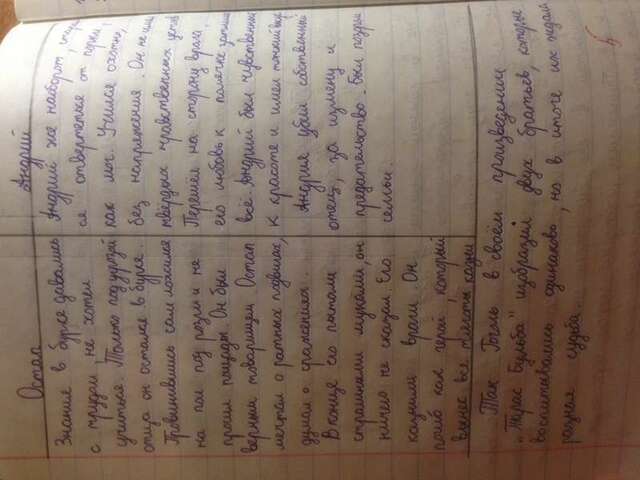 Остап
Знания в бурсе давались
с трудом, не хотел
учиться. Только под угрозой
отца он остался в бурсе.
Провинившись сам ложился
на пол под розги и не
просил пощады. Он был
верным товарищем. Остап
мечтал о ратных подвигах,
думал о сражениях.
В конце его пытали
страшными муками, он
ничего не сказал. Его
казнили враги. Он
погиб как герой, который
вынес все тяготы казни
Андрий
Андрий же наоборот,
ся отвертеться от порки,
как мог. Учился охотно,
без напряжения. Он не имел
твёрдых нравственных устоев
Перешёл на сторону врага,
его любовь к полячке затмила
всё. Андрий был чувственным
к красоте и имел тонкий вкус
Андрия убил собственный
отец, за измену и
предательство. Был позором
семьи.
Так Гоголь в своём произведении
"Тарас Бульба" изобразил двух братьев, которые
воспитывались одинаково, но в итоге их ждала
разная судьба.